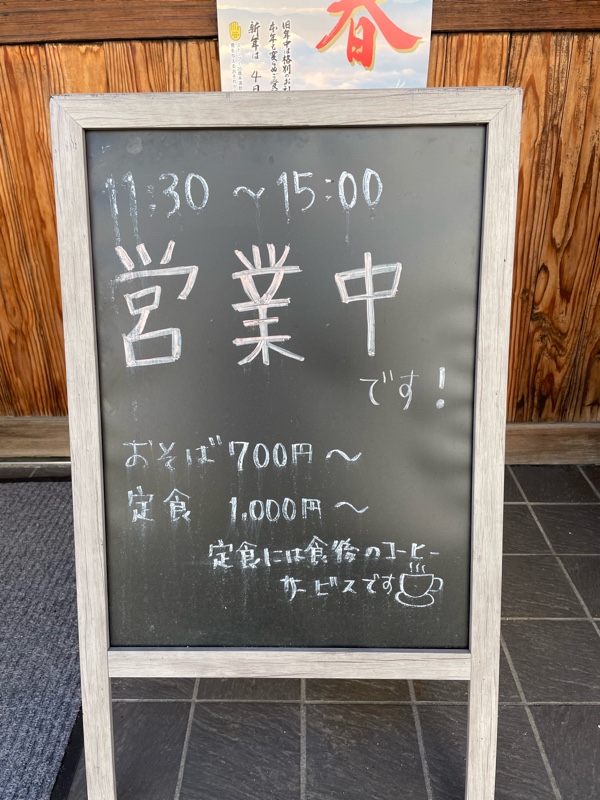 春
旧年中は格別のお
新年は 4日
11:30 ～ 15:00
営業中
です!
おそば 700円 ～
定食 1,000円 ～
定食には食後のコーヒー
サービスです